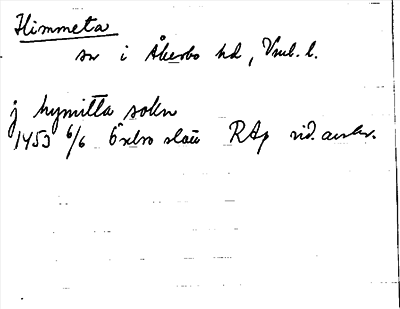 Himmeta
sn i Åkerbo hd, Vml. l.
j hymitta sokn
1453 6/6 Örebro slott RAp vid. avskr.